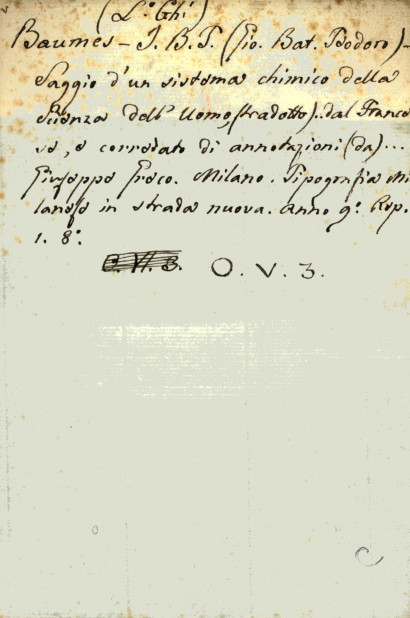 (L.° Ghi)
Baumes - J. B. T. (Gio. Bat. Teodoro) -
Saggio d'un sistema chimico della
Scienza dell' Uomo, (tradotto) .. dal France
se, e corredato di annotazioni (da) ...
Giuseppe Greco. Milano. Tipografia Mi
lanese in strada nuova. Anno 9.° Rep.
1. 8.°
O. V. 3.